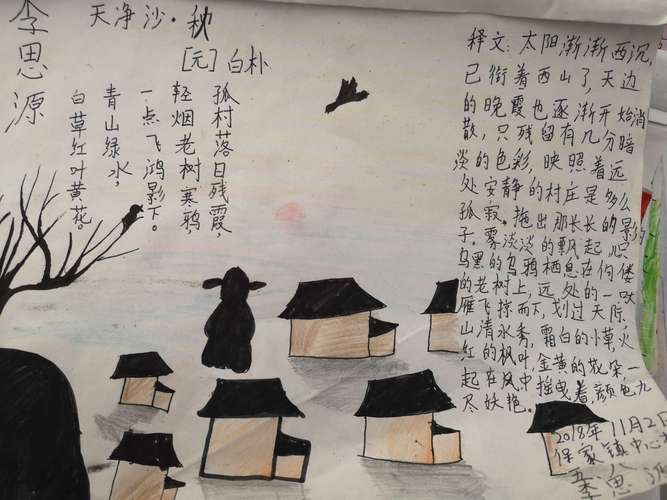 李思源
天净沙·秋
[元]白朴
孤村落日残霞,
轻烟老树寒鸦,
一点飞鸿影下。
青山绿水,
白草红叶黄花。
释文:太阳渐渐西沉,
已衔着西山了,天边
的晚霞也逐渐开始消
散,只残留有几分暗
淡的色彩,映照着远
处安静的村庄是多么
孤寂。拖出那长长的影
子。雾淡淡的飘起,
乌黑的乌鸦栖息在佝偻
的老树上,远处的一
雁飞掠而下,划过天际,
山清水秀,霜白的小草,火
红的枫叶,金黄的花朵一
起在风中摇曳着,颜色九
尽妖艳。
2018年11月2日
保家镇中心